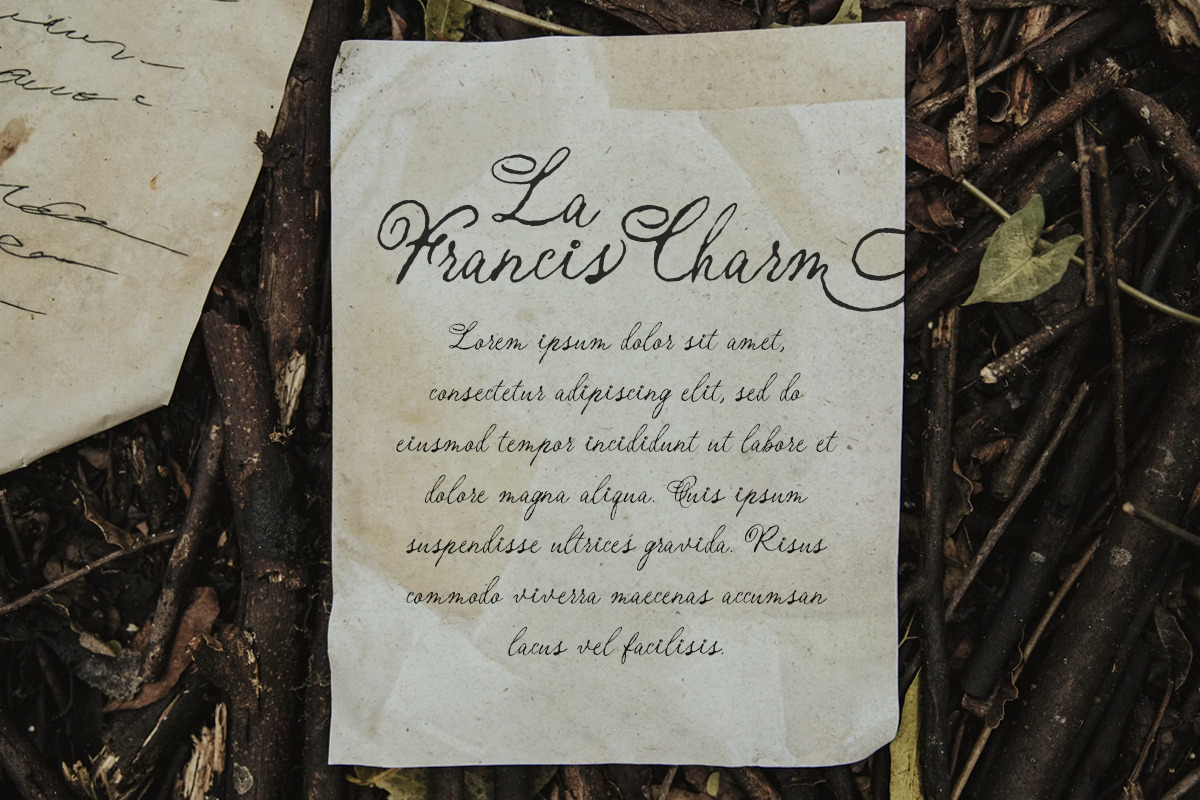 La
Francis Charm
Lorem ipsum dolor sit amet,
consectetur adipiscing elit, sed do
eiusmod tempor incididunt ut labore et
dolore magna aliqua. Quis ipsum
suspendisse ultrices gravida. Risus
commodo viverra maecenas accumsan
lacus vel facilisis.